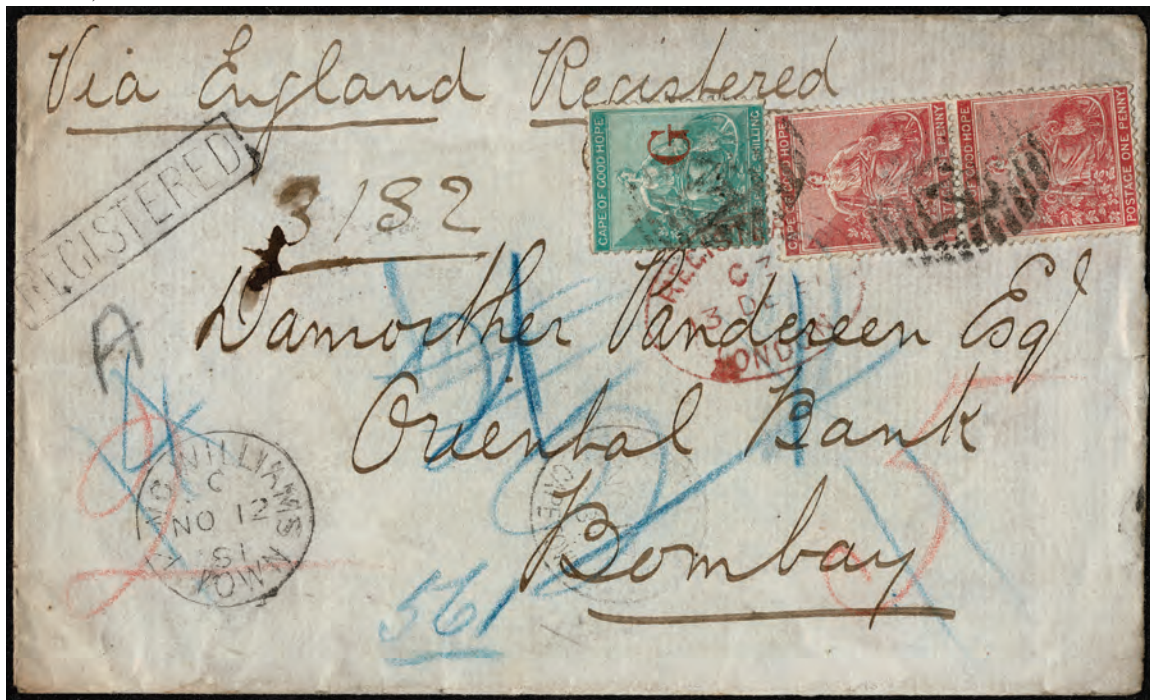 Via England Registered
REGISTERED
3182
CAPE OF GOOD HOPE
SHILLING
G
CAPE OF GOOD HOPE
PENNY
GOOD HOPE.
POSTAGE ONE PENNY
C
3 DE
LONDON
A
Damorther Pandereen Esq
Oriental Bank
Bombay
KING WILLIAMS TOWN
C
NO 12
81
CAPE
561